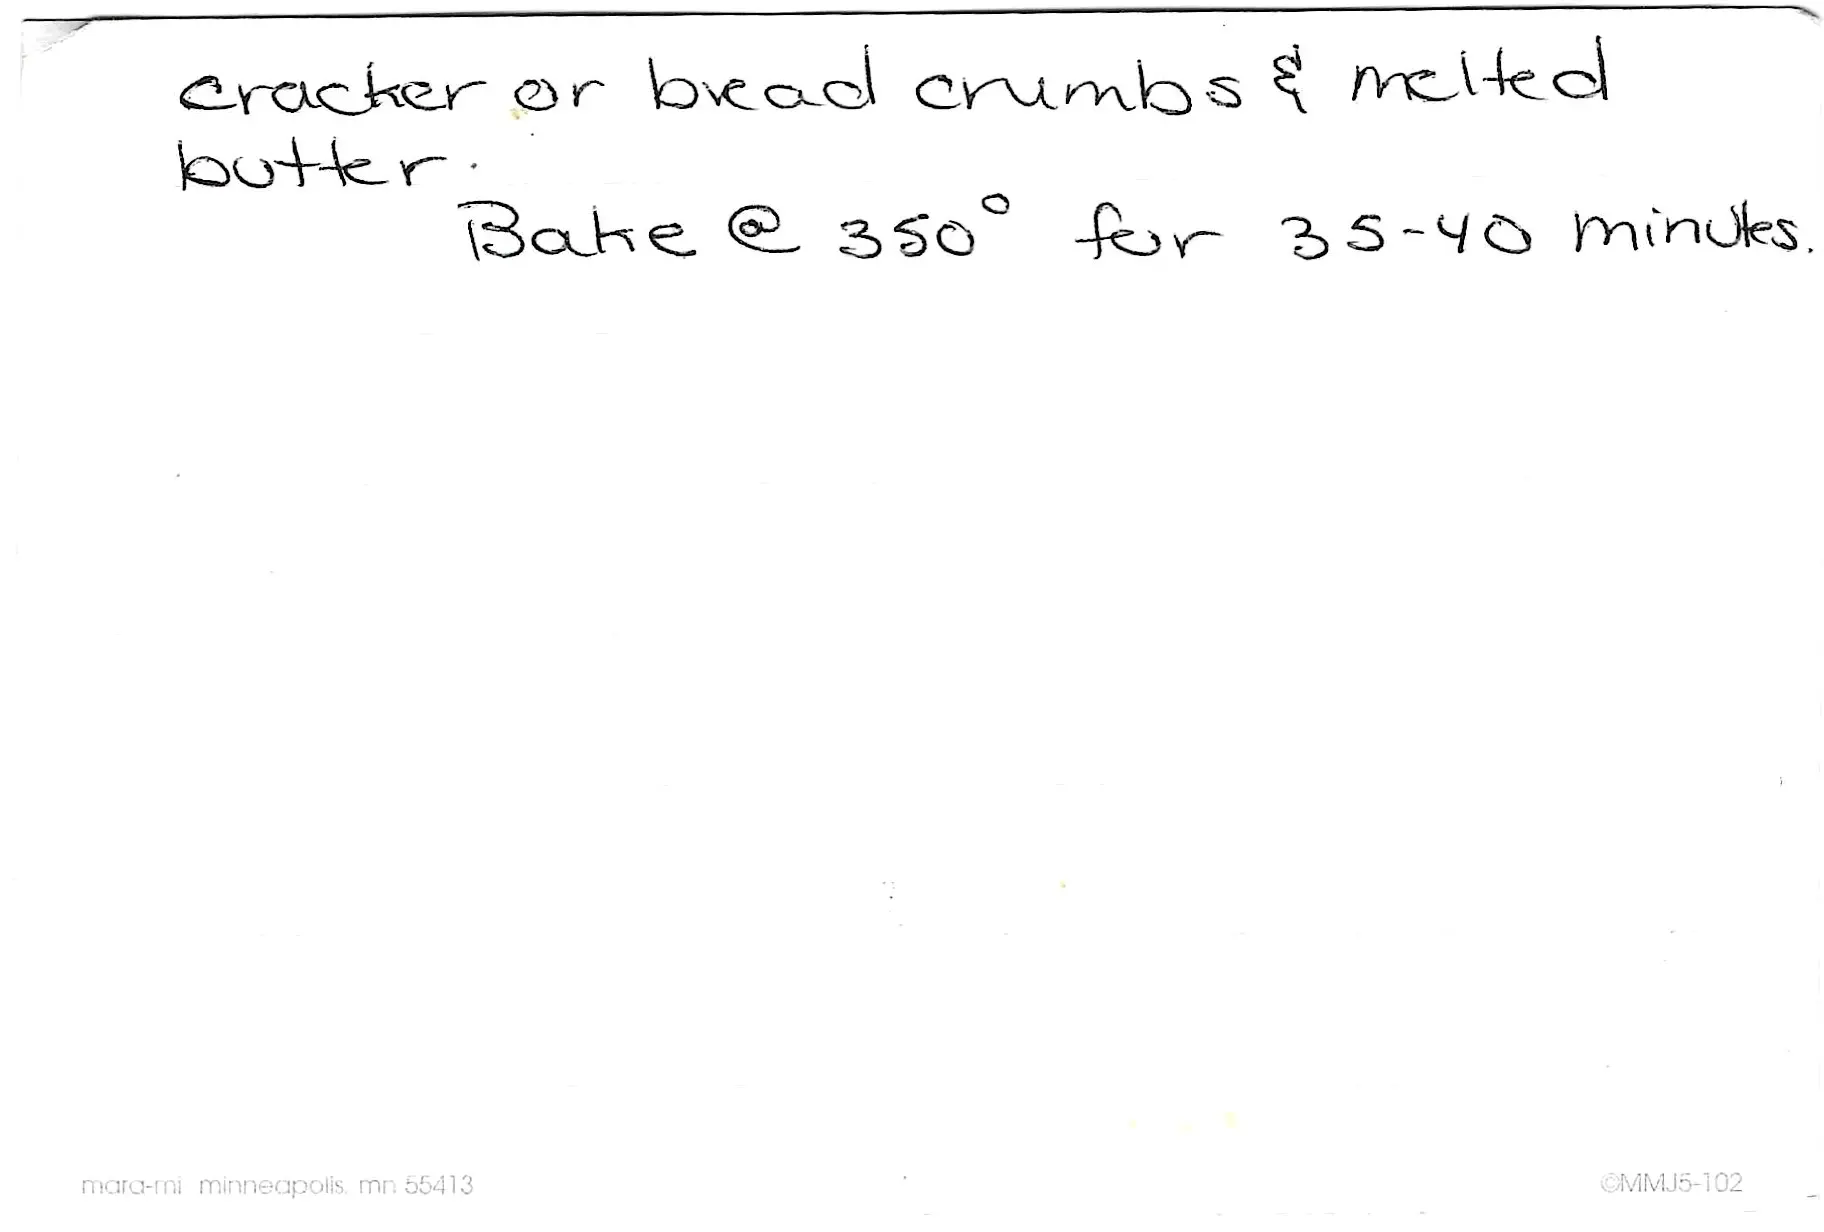 cracker or bread crumbs & melted
butter.
Bake @ 350° for 35-40 minutes.
mara-mi minneapolis, mn 55413
©MMJ5-102